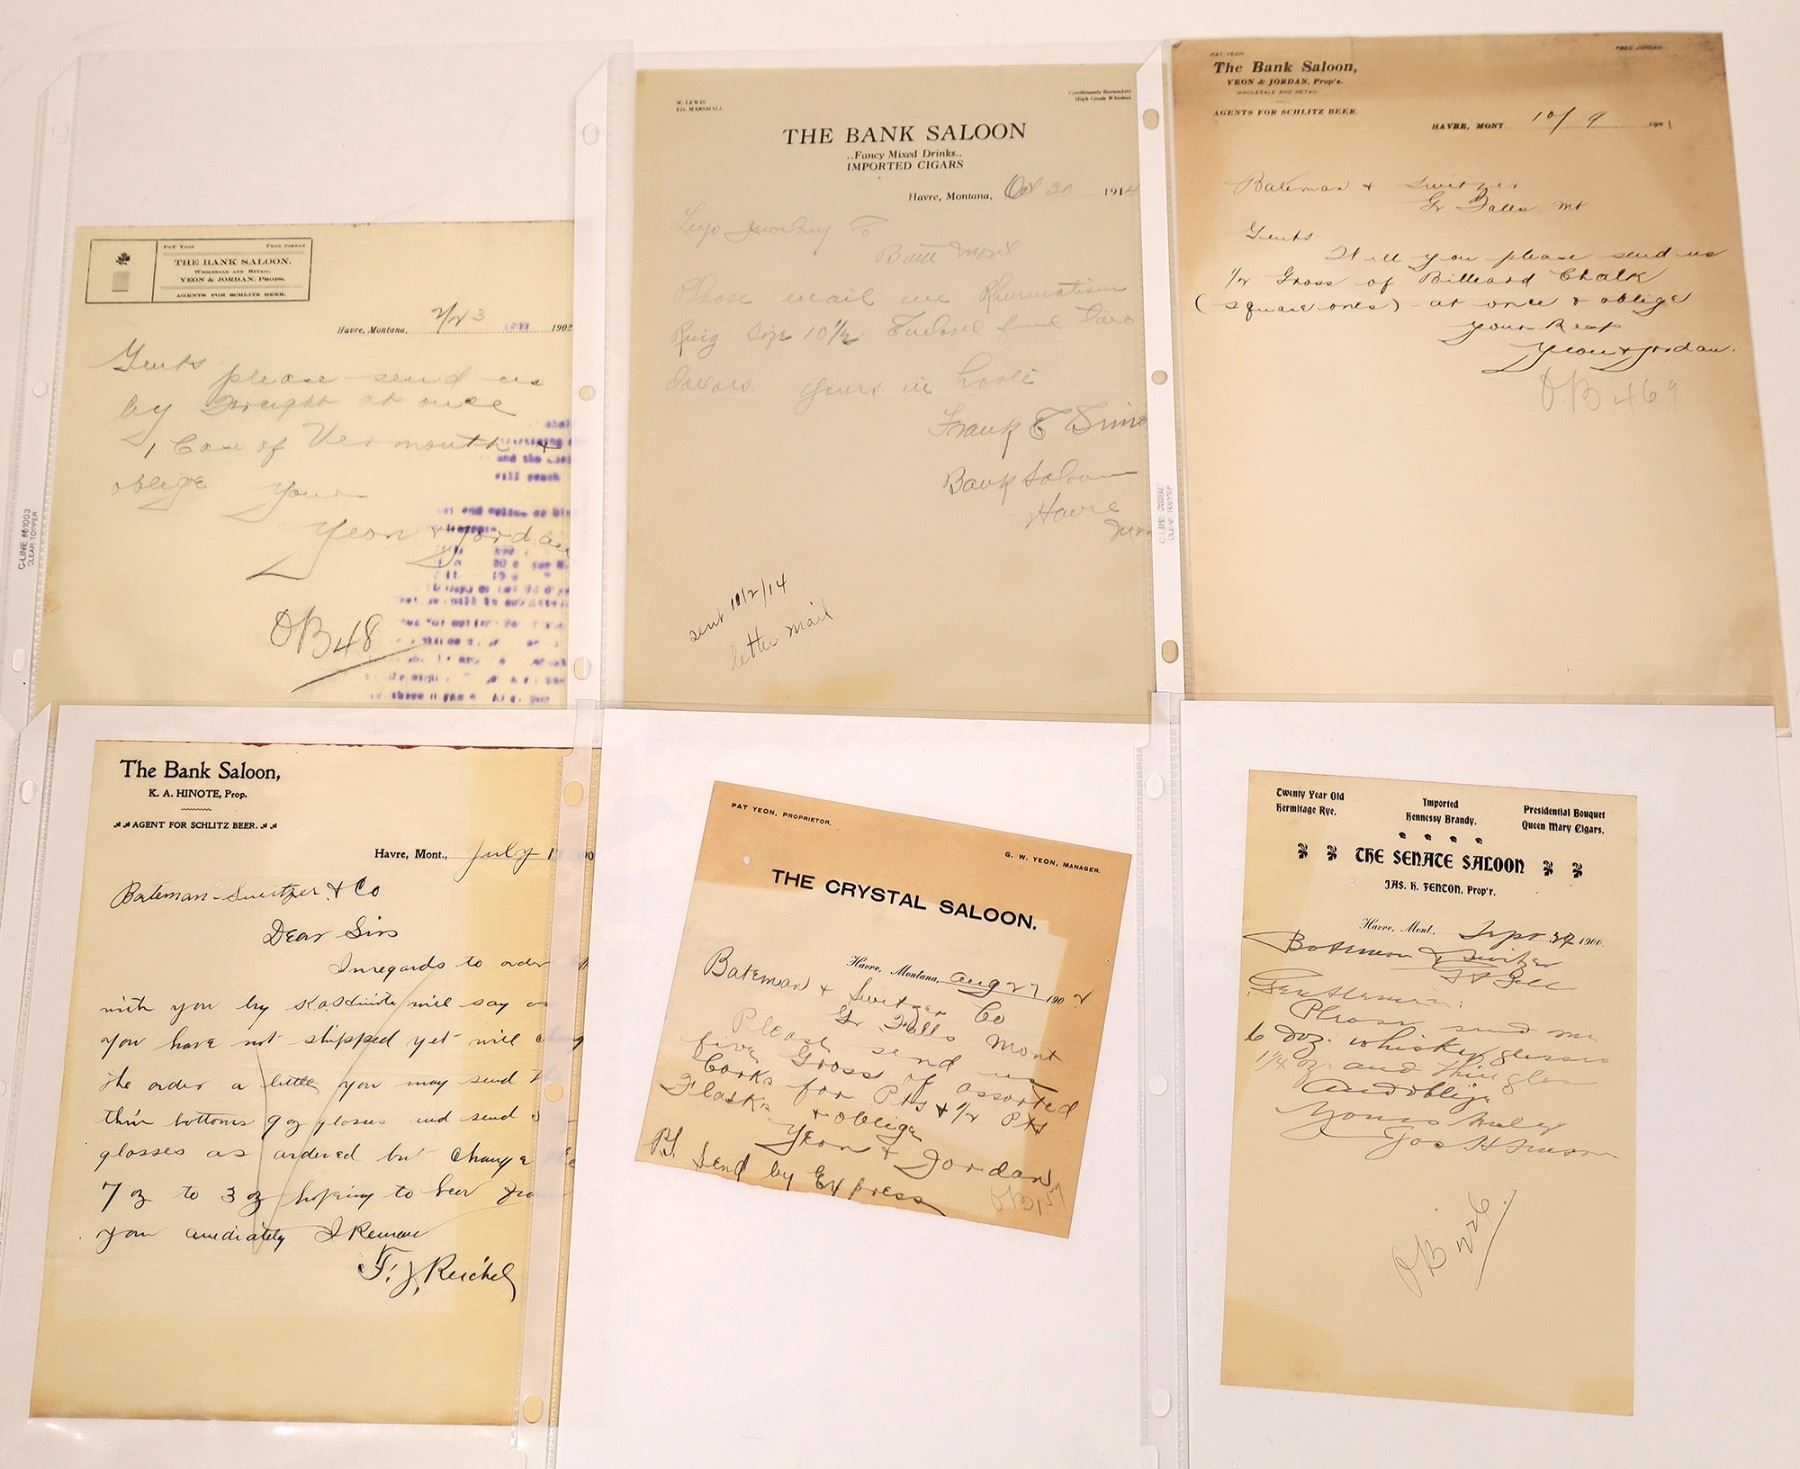 PAT YEON
FRED JORDAN
THE BANK SALOON.
WHOLESALE AND RETAIL.
YEON & JORDAN, PROPS.
AGENTS FOR SCHLITZ BEER.
Havre, Montana, 2/23 1902
Gents please send us
by Freight at once
1 Case of Vermouth &
oblige Your
Yeon & Jordan
OB 48
and the
will reach
C-LINE #61003
CLEAR TOPPER
W. LEWIS
ED. MARSHALL
Gentlemanly Bartenders
High Grade Whiskies
THE BANK SALOON
..Fancy Mixed Drinks..
IMPORTED CIGARS
Havre, Montana, Oct 20 1914
Leys Jewelry Co
Butte Mont
Please mail me Rheumatism
Ring Size 10 1/2 Enclosed find two
dollars. yours in haste
Frank E
Bank Saloon
Havre
Mon
sent 10/2/14
letter mail
PAT YEON
FRED JORDAN
The Bank Saloon,
YEON & JORDAN, Prop's.
WHOLESALE AND RETAIL.
AGENTS FOR SCHLITZ BEER.
HAVRE, MONT. 10/9 1901
Bateman & Switzer
Gr Falls Mt
Gents
Will you please send us
1/2 Gross of Billeard Chalk
(square ones) at once & oblige
your Resp
Yeon & Jordan.
OB 469
The Bank Saloon,
K. A. HINOTE, Prop.
AGENT FOR SCHLITZ BEER.
Havre, Mont., July 1 90
Bateman-Switzer & Co
Dear Sirs
Inregards to order
with you by K.A. Hinote will say as
you have not shipped yet will
the order a little you may send
thin bottoms 9 oz glasses and send
glosses as ordered but change
7 oz to 3 oz hoping to heer
you I Remain
F. J. Reichel
PAT YEON, PROPRIETOR.
G. W. YEON, MANAGER.
THE CRYSTAL SALOON.
Havre, Montana, Aug 27 1902
Bateman & Switzer Co
Gr Falls Mont
Please send us
five Gross of assorted
Corks for Pts & 1/2 Pts
Flasks & oblige
Yeon & Jordan
PS. Send by Express
Twenty Year Old
Hermitage Rye.
Imported
Hennessy Brandy.
Presidential Bouquet
Queen Mary Cigars.
THE SENATE SALOON
JAS. H. FENTON, Prop'r.
Havre, Mont. Sept 1900.
Bateman & Switzer
Gt Falls
Gentlemen:
Please send me
6 doz. whiskey glasses
1 1/4 oz and thin
and oblige
Yours truly
Jas H Fenton
OB 226